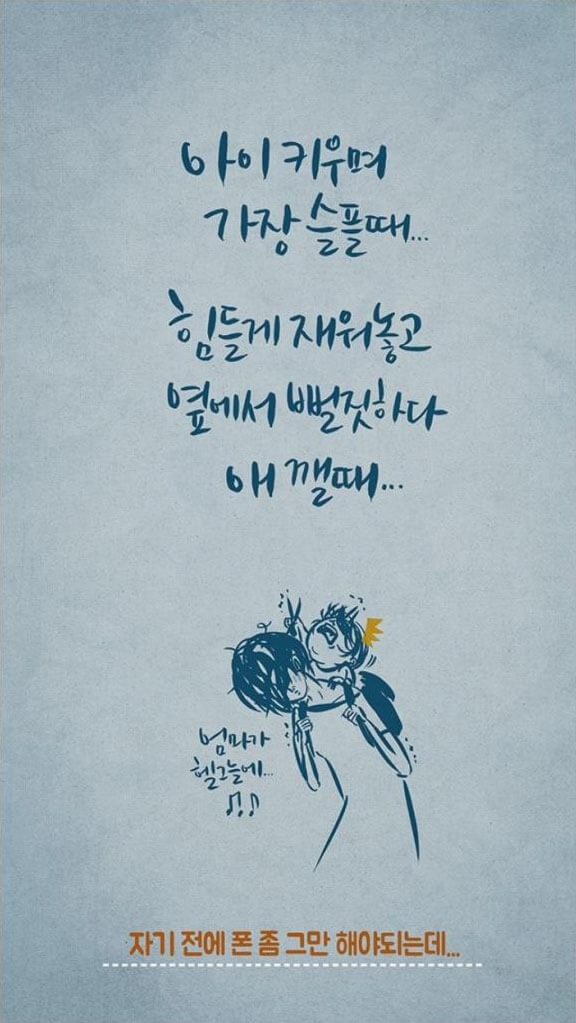 아이 키우며
가장 슬플때...
힘들게 재워놓고
옆에서 뻘짓하다
애 깰때...
엄마가
헬그늘에...
자기 전에 폰 좀 그만 해야되는데...